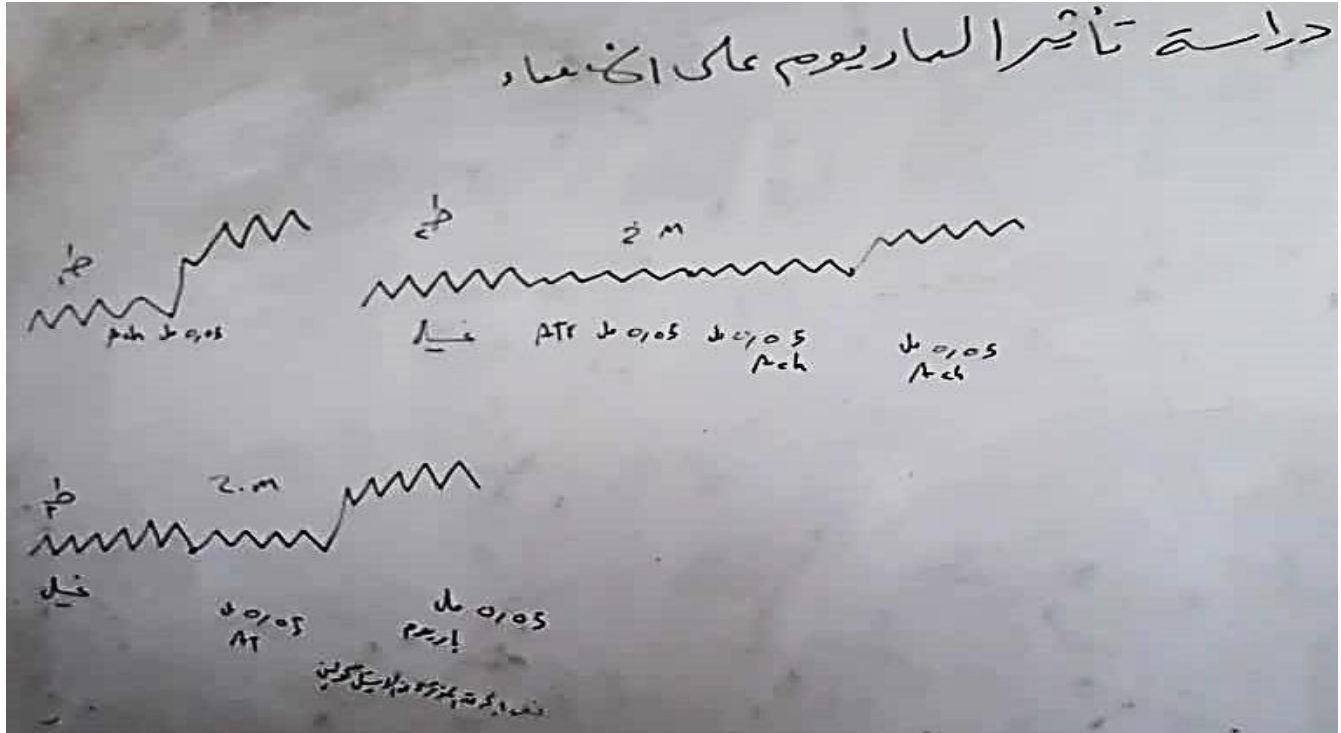 دراسة تأثير الباريوم على الامعاء
ط١
Ach مل 0,05
ط٢
2 M
غسيل
ATr مل 0,05
مل 0,05
Ach
مل 0,05
Ach
ط٣
2.M
غسيل
مل 0,05
AT
مل 0,05
باريوم